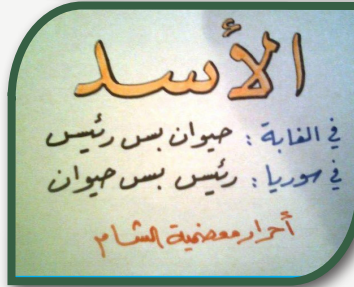 الأسد
في الغابة : حيوان بس رئيس
في سوريا : رئيس بس حيوان
أحرار معضمية الشام